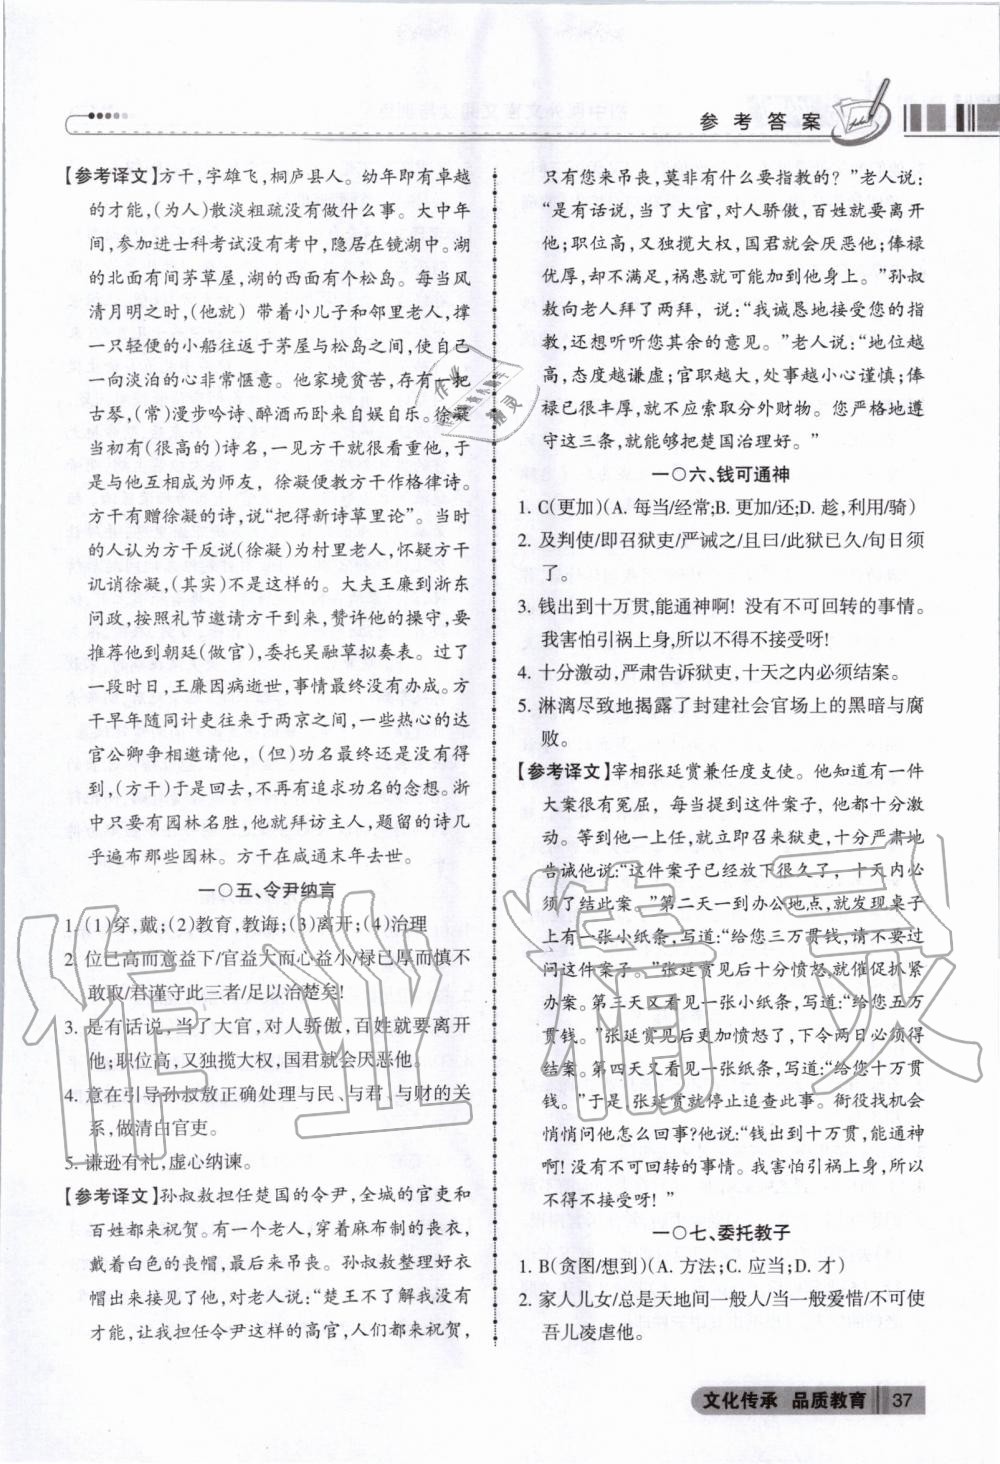 参考答案
【参考译文】方干,字雄飞,桐庐县人。幼年即有卓越
的才能,(为人)散淡粗疏没有做什么事。大中年
间,参加进士科考试没有考中,隐居在镜湖中。湖
的北面有间茅草屋,湖的西面有个松岛。每当风
清月明之时,(他就)带着小儿子和邻里老人,撑
一只轻便的小船往返于茅屋与松岛之间,与自己
一向淡泊的心非常惬意。他家境贫苦,存有一把
古琴,(常)漫步吟诗、醉酒而卧来自娱自乐。徐凝
当初有(很高的)诗名,一见方干就很看重他,于
是与他互相成为师友,徐凝便教方干作格律诗。
方干有赠徐凝的诗,说“把得新诗草里论”。当时
的人认为方干反说(徐凝)为村里老人,怀疑方干
讥诮徐凝,(其实)不是这样的。大夫王廉到浙东
问政,按照礼节邀请方干到来,赞许他的操守,要
推荐他到朝廷(做官),委托吴融草拟奏表。过了
一段时日,王廉因病逝世,事情最终没有办成。方
干早年随同计吏往来于两京之间,一些热心的达
官公卿争相邀请他,(但)功名最终还是没有得
到,(方干)于是回去,不再有追求功名的念想。浙
中只要有园林名胜,他就拜访主人,题留的诗几
乎遍布那些园林。方干在咸通末年去世。
一〇五、令尹纳言
1. (1)穿,戴;(2)教育,教诲;(3)离开;(4)治理
2. 位已高而意益下/官益大而心益小/禄已厚而慎不
敢取/君谨守此三者/足以治楚矣!
3. 是有话说,当了大官,对人骄傲,百姓就要离开
他;职位高,又独揽大权,国君就会厌恶他。
4. 意在引导孙叔敖正确处理与民、与君、与财的关
系,做清白官吏。
5. 谦逊有礼,虚心纳谏。
【参考译文】孙叔敖担任楚国的令尹,全城的官吏和
百姓都来祝贺。有一个老人,穿着麻布制的丧衣,
戴着白色的丧帽,最后来吊丧。孙叔敖整理好衣
帽出来接见了他,对老人说:“楚王不了解我没有
才能,让我担任令尹这样的高官,人们都来祝贺,
只有您来吊丧,莫非有什么要指教的?”老人说:
“是有话说,当了大官,对人骄傲,百姓就要离开
他;职位高,又独揽大权,国君就会厌恶他;俸禄
优厚,却不满足,祸患就可能加到他身上。”孙叔
敖向老人拜了两拜,说:“我诚恳地接受您的指
教,还想听听您其余的意见。”老人说:“地位越
高,态度越谦虚;官职越大,处事越小心谨慎;俸
禄已很丰厚,就不应索取分外财物。您严格地遵
守这三条,就能够把楚国治理好。”
一〇六、钱可通神
1. C(更加)(A. 每当/经常;B. 更加/还;D. 趁,利用/骑)
2. 及判使/即召狱吏/严诫之/且曰/此狱已久/旬日须
了。
3. 钱出到十万贯,能通神啊! 没有不可回转的事情。
我害怕引祸上身,所以不得不接受呀!
4. 十分激动,严肃告诉狱吏,十天之内必须结案。
5. 淋漓尽致地揭露了封建社会官场上的黑暗与腐
败。
【参考译文】宰相张延赏兼任度支使。他知道有一件
大案很有冤屈,每当提到这件案子,他都十分激
动。等到他一上任,就立即召来狱吏,十分严肃地
告诫他说:“这件案子已经放下很久了,十天内必
须了结此案。”第二天一到办公地点,就发现桌子
上有一张小纸条,写道:“给您三万贯钱,请不要过
问这件案子。”张延赏见后十分愤怒,就催促抓紧
办案。第三天又看见一张小纸条,写道:“给您五万
贯钱。”张延赏见后更加愤怒了,下令两日必须得
结案。第四天又看见一张小纸条,写道:“给您十万
钱。”于是张延赏就停止追查此事。衙役找机会
悄悄问他怎么回事?他说:“钱出到十万贯,能通神
啊! 没有不可回转的事情。我害怕引祸上身,所以
不得不接受呀!”
一〇七、委托教子
1. B(贪图/想到)(A. 方法;C. 应当;D. 才)
2. 家人儿女/总是天地间一般人/当一般爱惜/不可使
吾儿凌虐他。
文化传承 品质教育 37
作业精灵